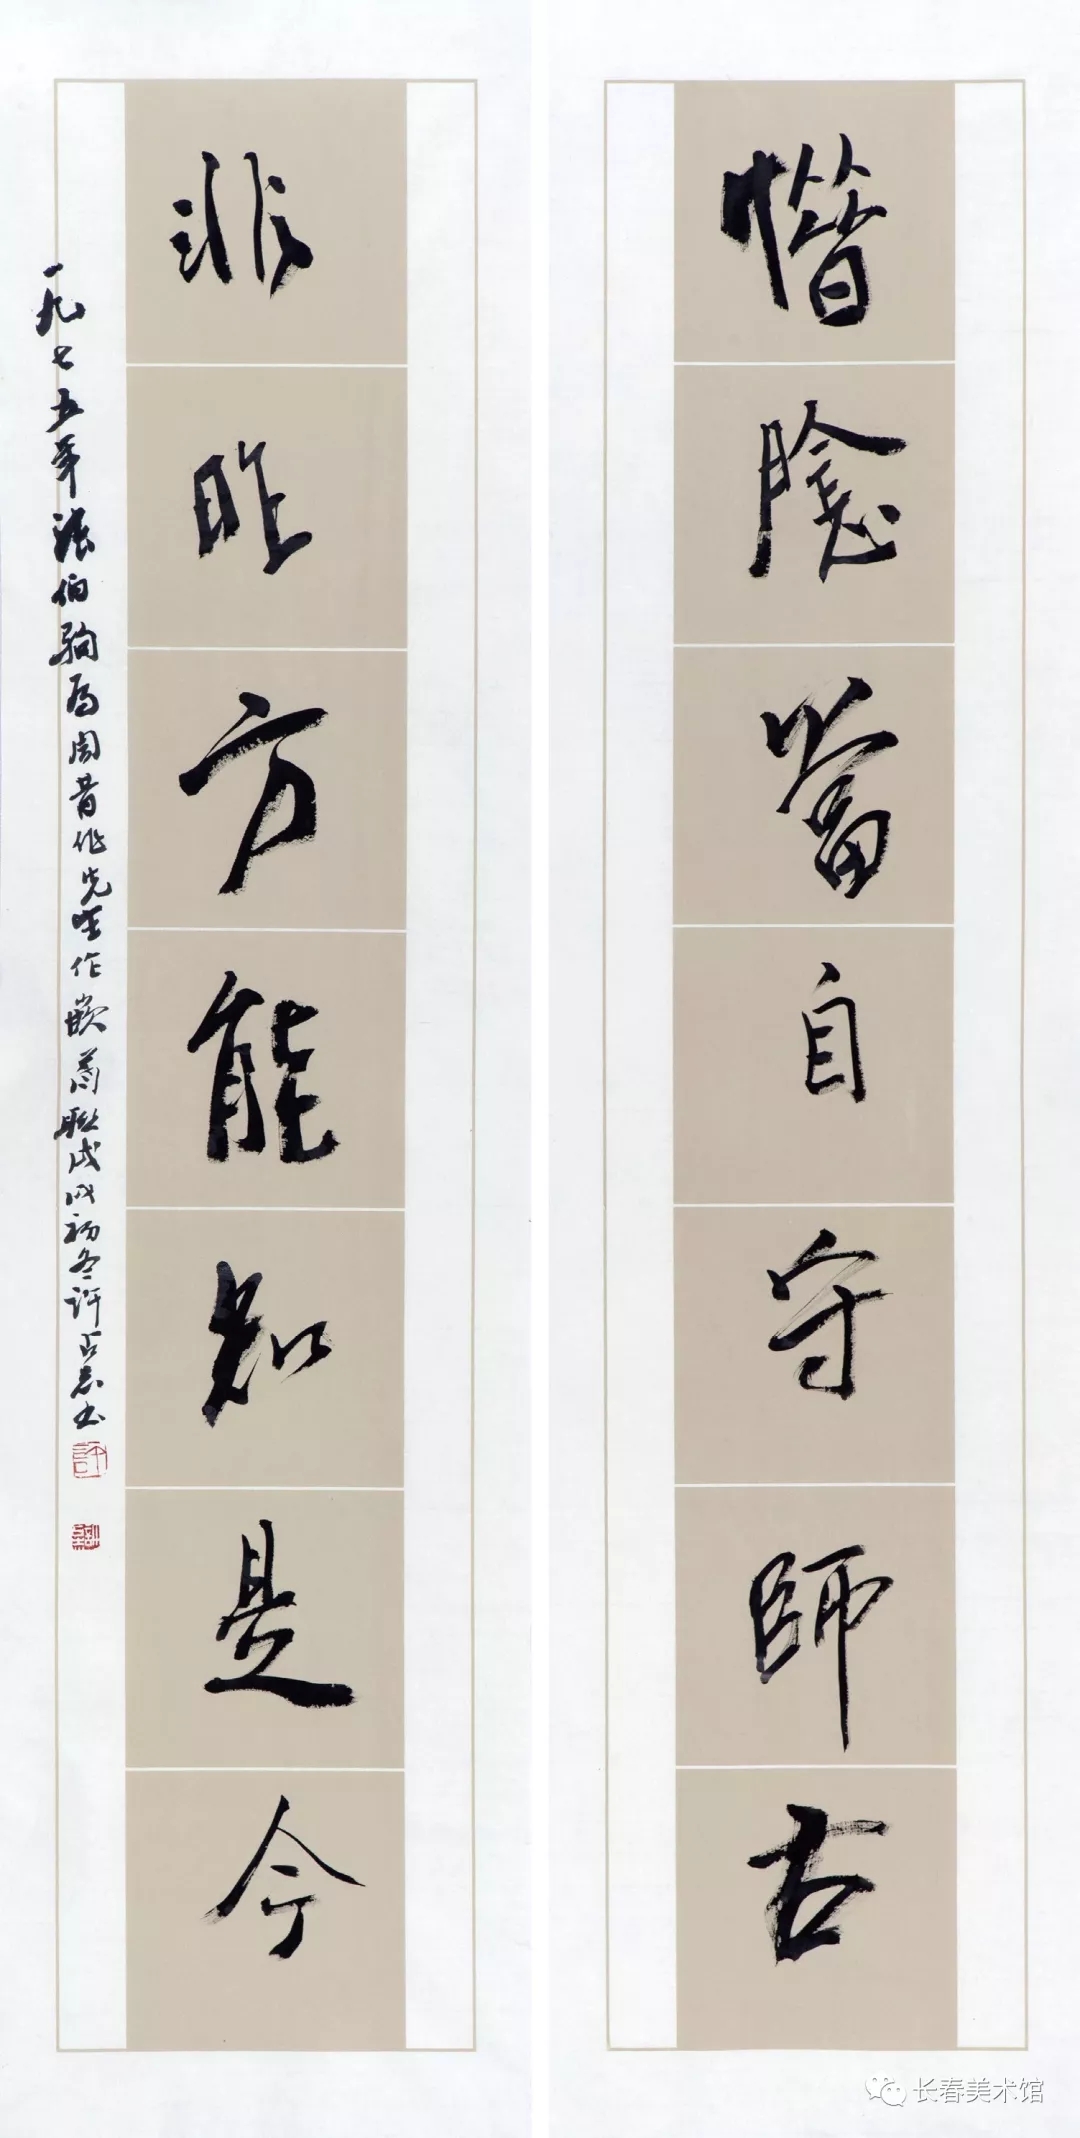 惜陰當自守師古
非昨方能知是今
一九七五年張伯駒為周昔非先生作嵌首聯戊戌初冬許占志書
长春美术馆